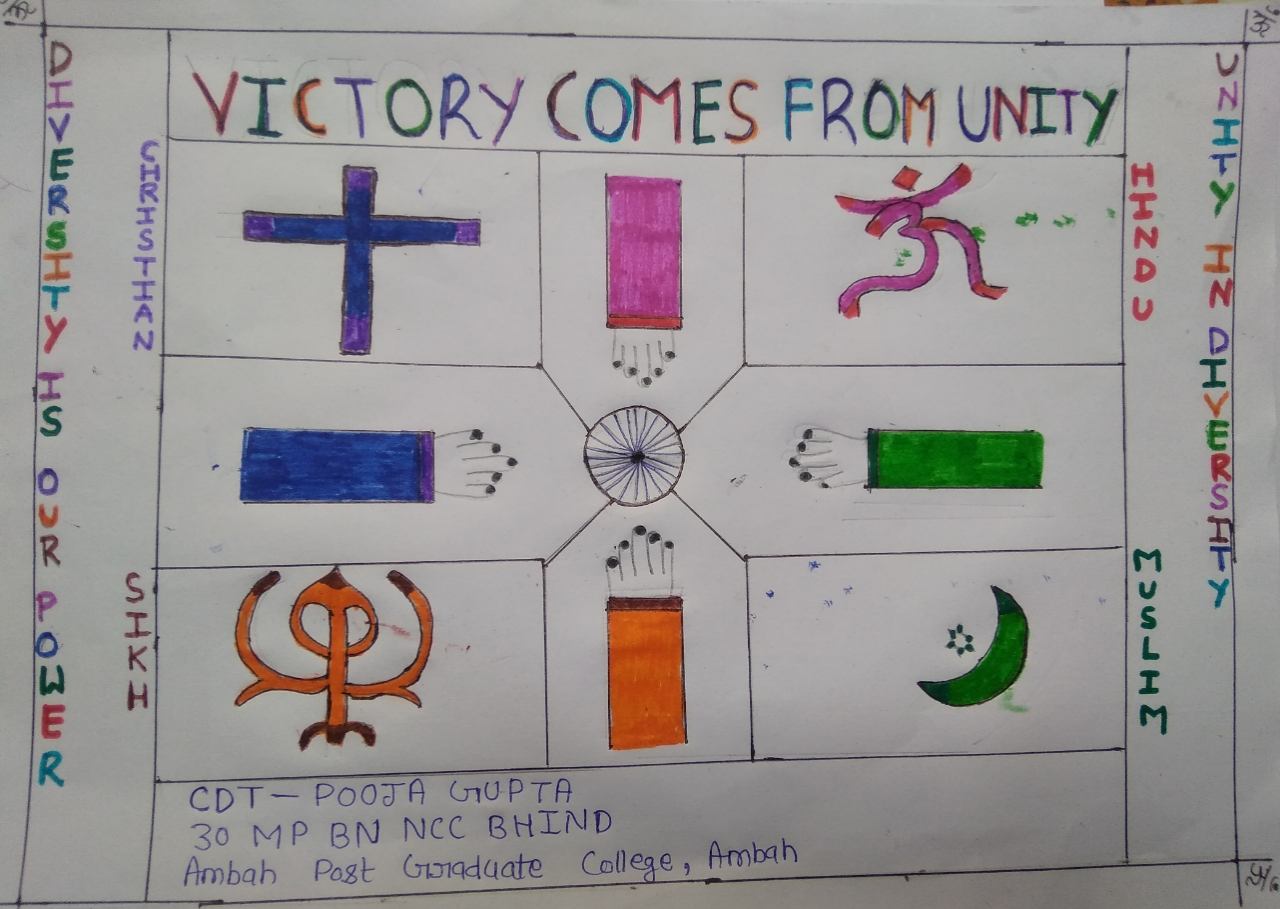 VICTORY COMES FROM UNITY
DIVERSITY IS OUR POWER
CHRISTIAN
SIKH
HINDU
MUSLIM
UNITY IN DIVERSITY
CDT - POOJA GUPTA
30 MP BN NCC BHIND
Ambah Post Graduate College, Ambah